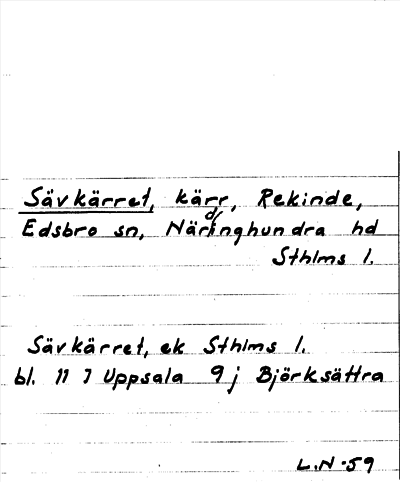 Sävkärret, kärr, Rekinde,
Edsbro sn, Närdinghundra hd
Sthlms l.
Sävkärret, ek Sthlms l.
bl. 11 I Uppsala 9 j Björksättra
L.N -59